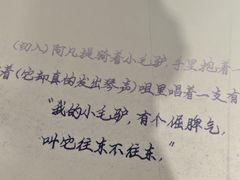 (切入)阿凡提骑着小毛驴,手里抱着一
着(它却真的发出琴声)咀里唱着一支有
“我的小毛驴,有个倔脾气,
叫它往东不往东,”